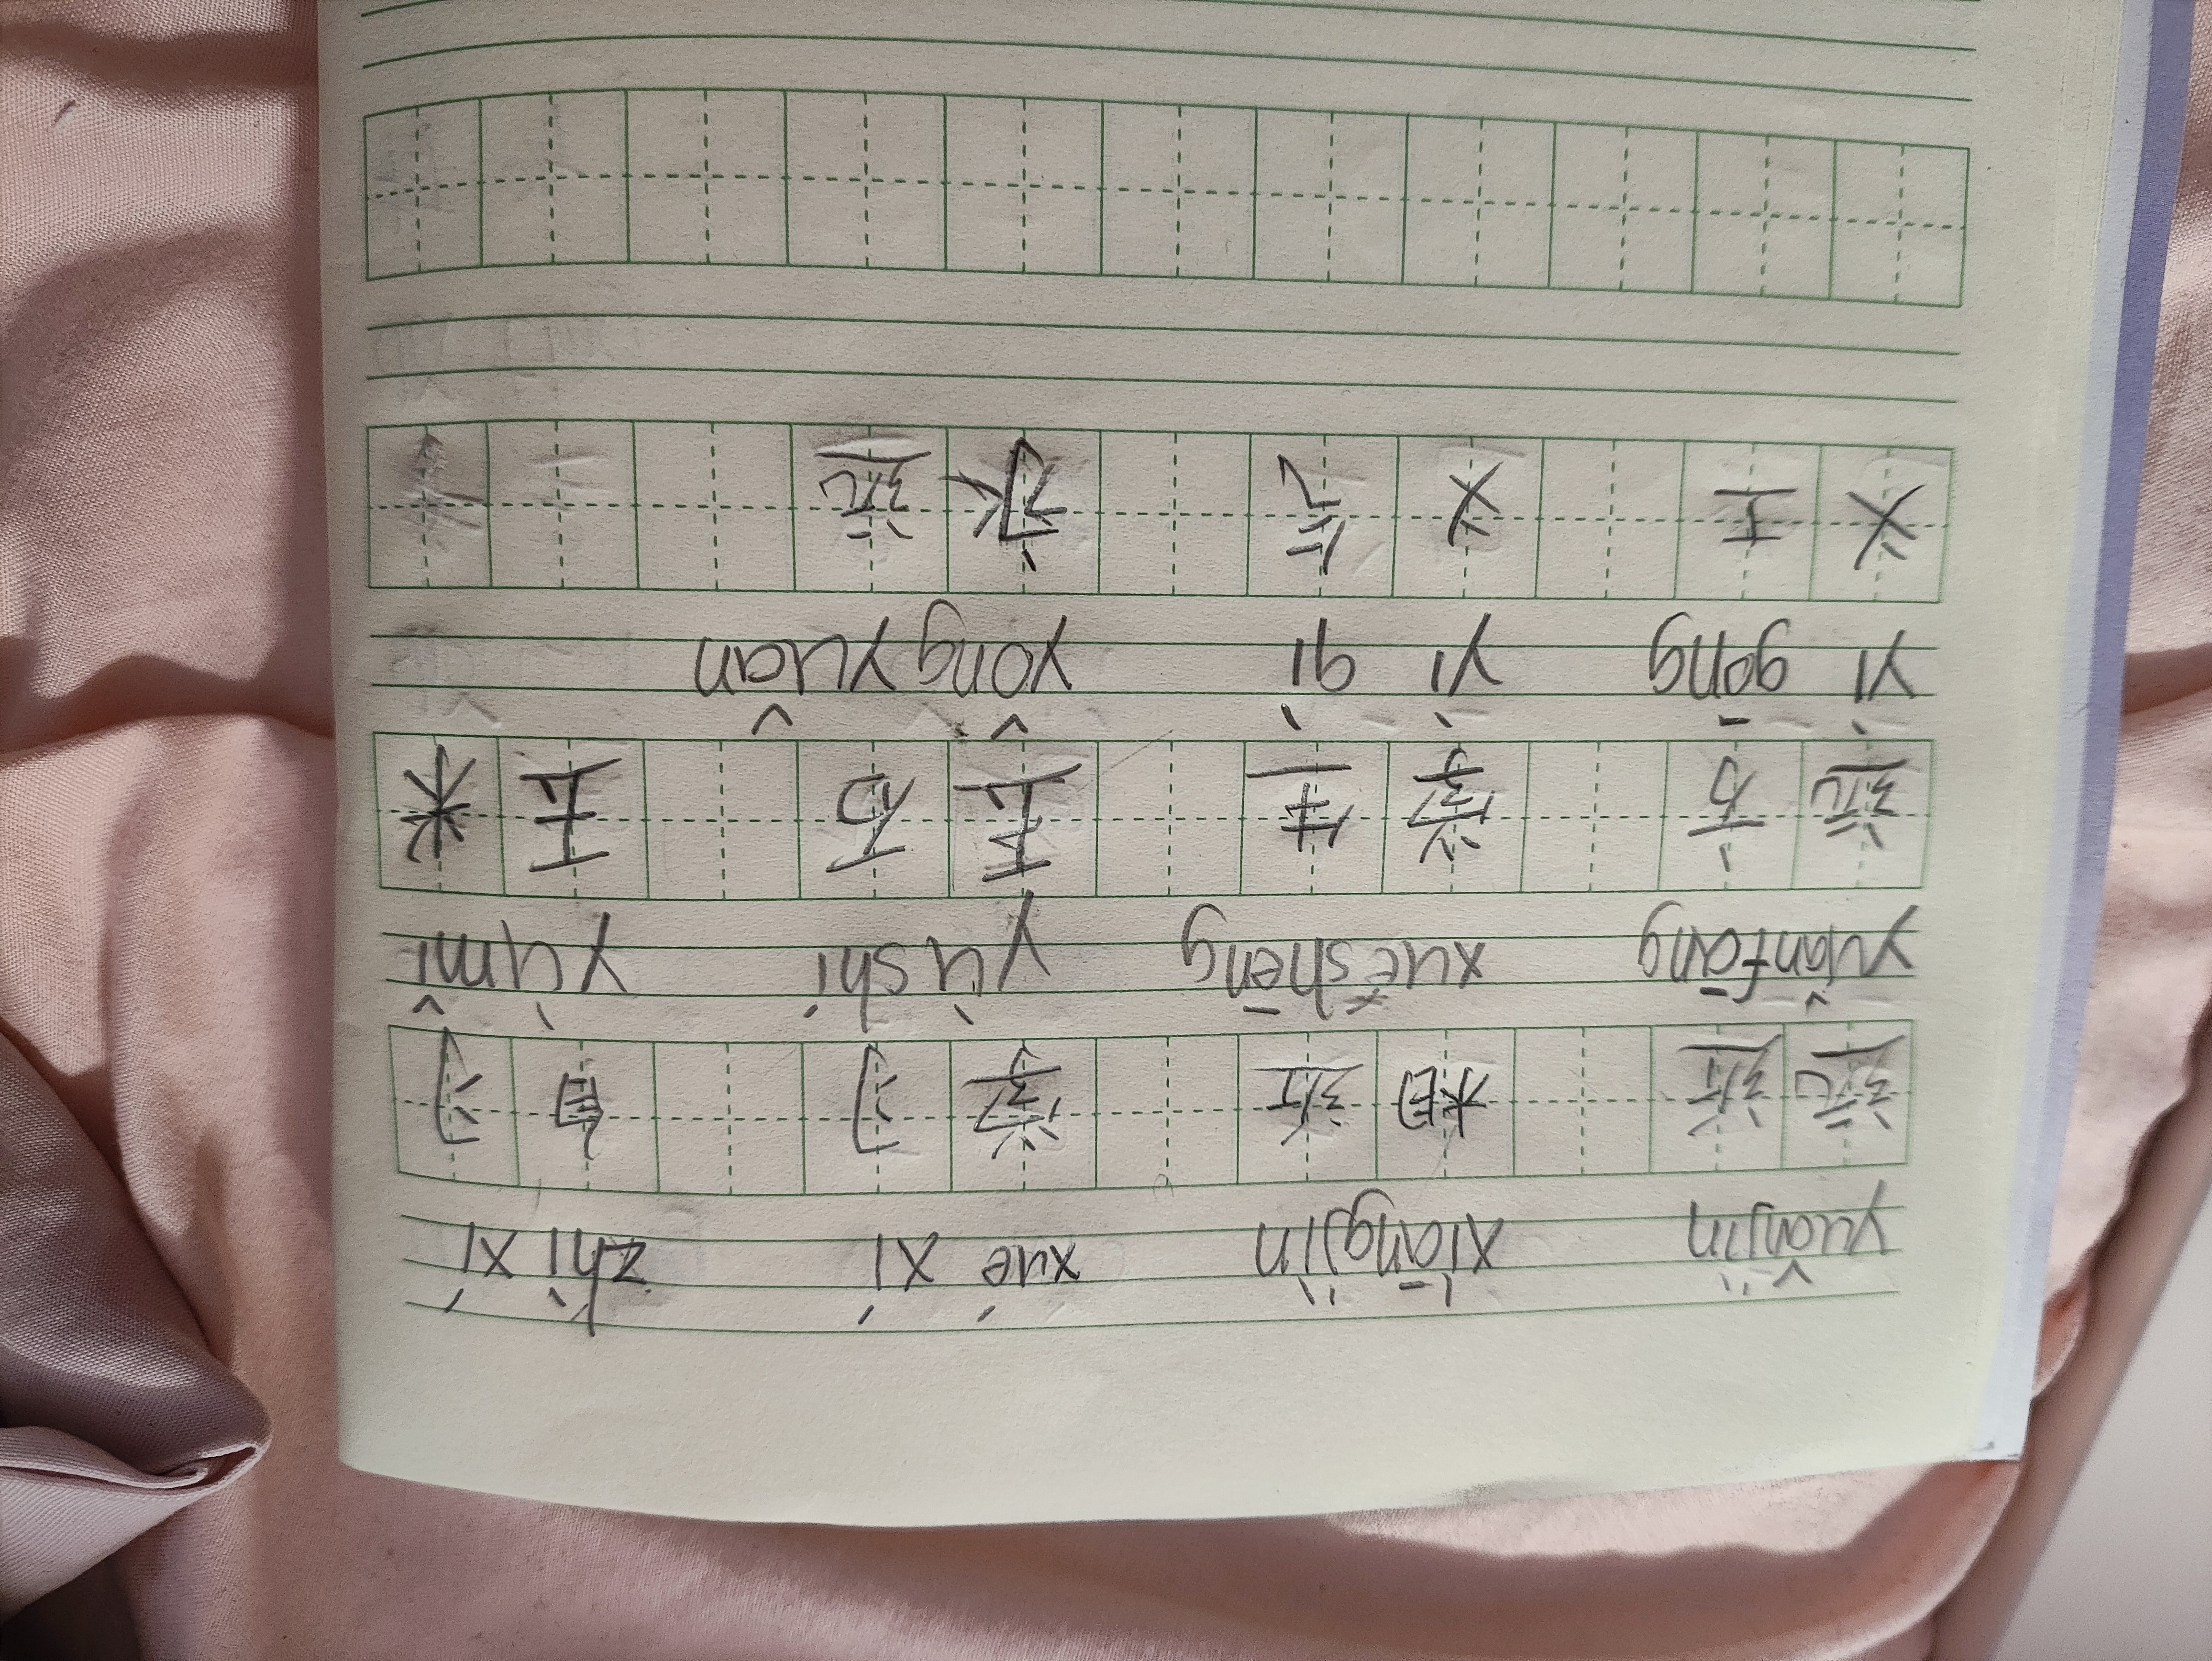 yuǎnjìn xiāngjìn xué xí zhì xí
远近 相近 学习 自习
yuǎnfāng xuéshēng yù shí yù mǐ
远方 学生 玉石 玉米
yì gōng yì qì yǒng yuǎn
义工 义气 永远